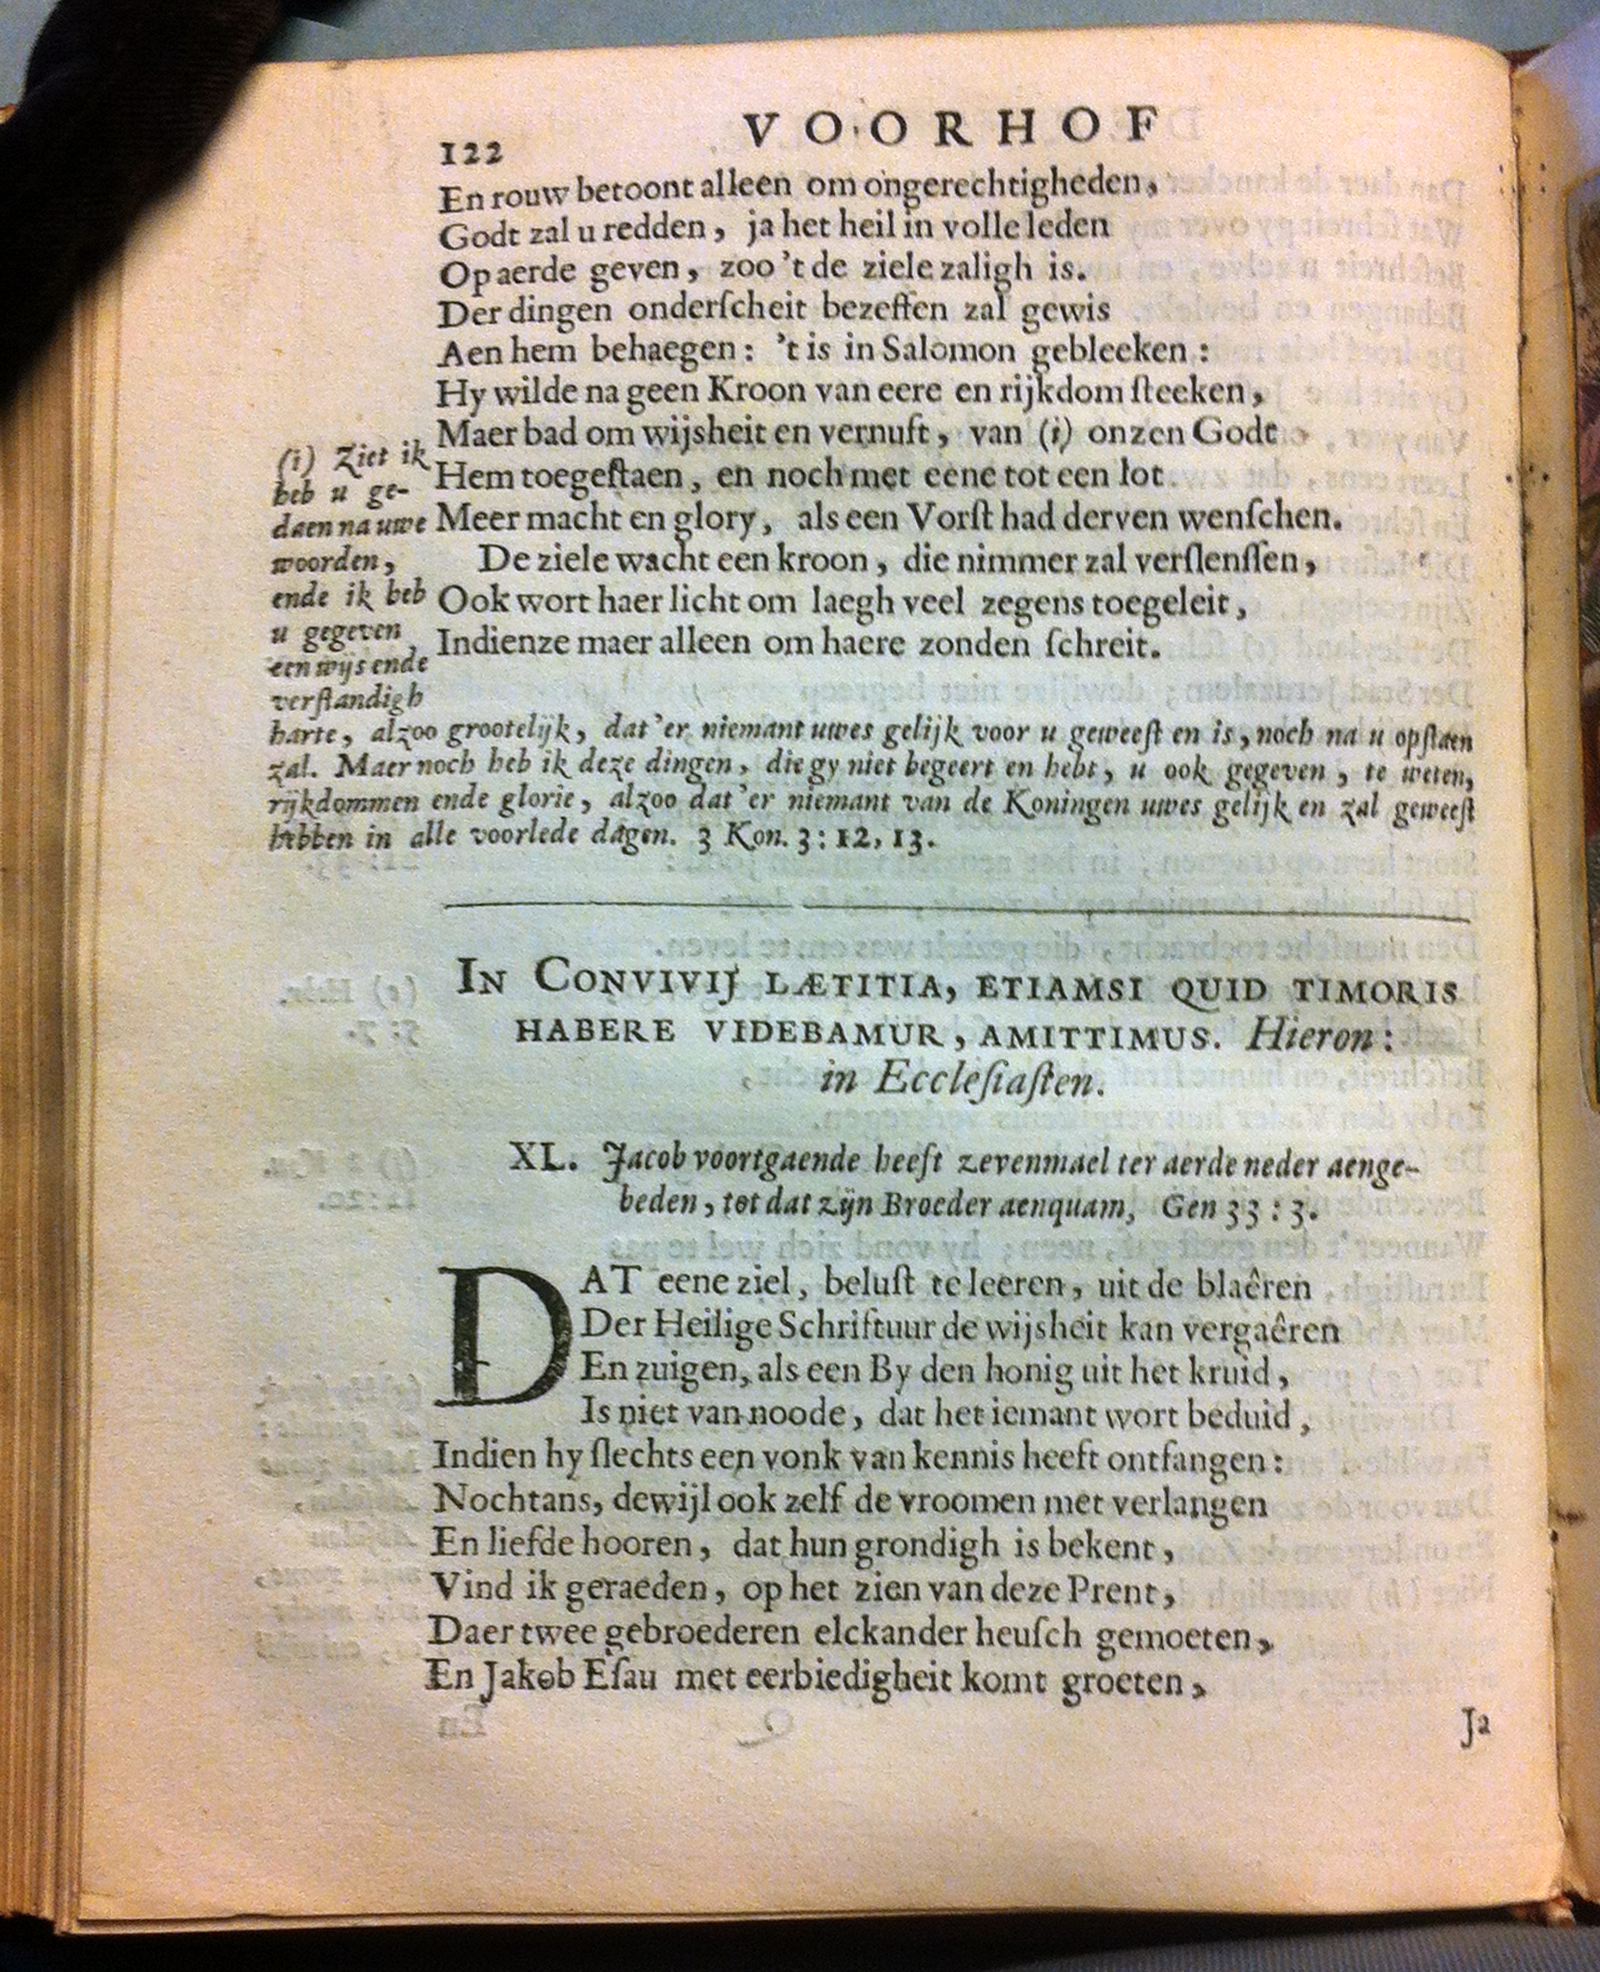 VOORHOF
122
En rouw betoont alleen om ongerechtigheden,
Godt zal u redden, ja het heil in volle leden
Op aerde geven, zoo 't de ziele zaligh is.
Der dingen onderſcheit bezeffen zal gewis
Aen hem behaegen: 't is in Salomon gebleeken:
Hy wilde na geen Kroon van eere en rijkdom ſteeken,
Maer bad om wijsheit en vernuft, van (i) onzen Godt
Hem toegeſtaen, en noch met eene tot een lot
Meer macht en glory, als een Vorſt had derven wenſchen.
De ziele wacht een kroon, die nimmer zal verſlenſſen,
Ook wort haer licht om laegh veel zegens toegeleit,
Indienze maer alleen om haere zonden ſchreit.
(i) Ziet ik
heb u ge-
daen na uwe
woorden,
ende ik heb
u gegeven
een wijs ende
verſtandigh
harte, alzoo grootelijk, dat'er niemant uwes gelijk voor u geweeſt en is, noch na u opſtaen
zal. Maer noch heb ik deze dingen, die gy niet begeert en hebt, u ook gegeven, te weten,
rijkdommen ende glorie, alzoo dat'er niemant van de Koningen uwes gelijk en zal geweeſt
hebben in alle voorlede dagen. 3 Kon. 3: 12, 13.
IN CONVIVIJ LÆTITIA, ETIAMSI QUID TIMORIS
HABERE VIDEBAMUR, AMITTIMUS. Hieron:
in Eccleſiaſten.
XL. Jacob voortgaende heeft zevenmael ter aerde neder aenge-
beden, tot dat zijn Broeder aenquam, Gen 33: 3.
DAT eene ziel, beluſt te leeren, uit de blaêren
Der Heilige Schriftuur de wijsheit kan vergaêren
En zuigen, als een By den honig uit het kruid,
Is niet van noode, dat het iemant wort beduid,
Indien hy ſlechts een vonk van kennis heeft ontfangen:
Nochtans, dewijl ook zelf de vroomen met verlangen
En liefde hooren, dat hun grondigh is bekent,
Vind ik geraeden, op het zien van deze Prent,
Daer twee gebroederen elckander heuſch gemoeten,
En Jakob Eſau met eerbiedigheit komt groeten,
Ja